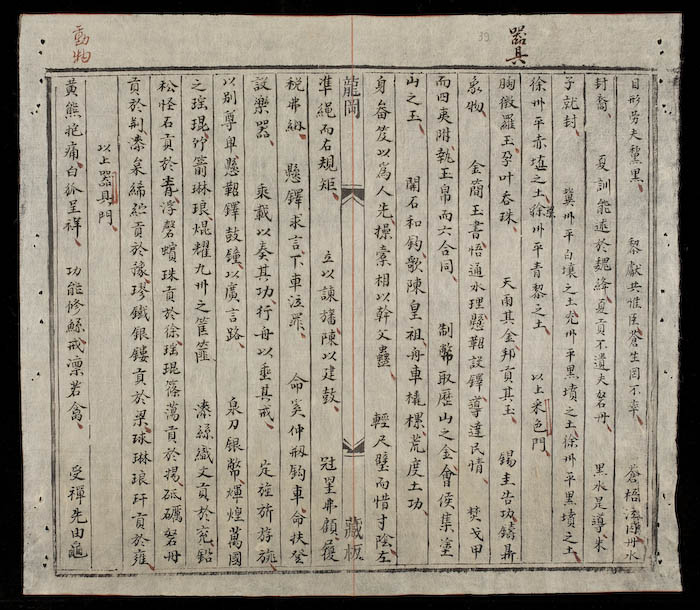 器具
39
目形勞夫黧黑 黎獻共惟臣蒼生罔不率 蒼梧泣丹水
封裔 夏訓能述於魏絳夏貢不遺夫砮丹 黑水是導朱
子就封 冀卅平白壤之土兖卅平黑墳之土徐卅平黑墳之土
徐卅平赤埴之土徐卅平青黎之土 以上釆色門
胸微羅玉孕叶吞珠 天雨其金邦貢其玉 錫圭告功鑄鼎
象物 金簡玉書悟通水理懸鞀設鐸導達民情 焚戈甲
而四夷附執玉帛而六合同 制幣取歷山之金會侯集塗
山之玉 開石和鈞歌陳皇祖舟車橇樏荒度土功
身畚笈以爲人先操橐相以幹父蠱 輕尺璧而惜寸陰左
龍岡 藏板
準繩而右規矩 立以諫旛陳以建鼓 冠罣弗顧履
稅弗納 懸鐸求言下車泣罪 命奚仲剏鈞車命扶登
設樂器 乘載以奏其功行舟以垂其戒 定旌旂斿旐
以別尊卑懸鞀鐸鼓鐘以廣言路 泉刀銀幣煇煌萬國
之瑶琨竹箭琳琅焜耀九卅之筐篚 漆絲織文貢於兖鉛
松怪石貢於青浮磬蠙珠貢於徐瑶琨篠蕩貢於揚砥礪砮丹
貢於荆漆枲絺紵貢於豫璆鐵銀鏤貢於梁球琳琅玕貢於雍
以上器具門
黄熊抱痛白狐呈祥 功能修鯀戒凛若禽 受禪先由龜
動物